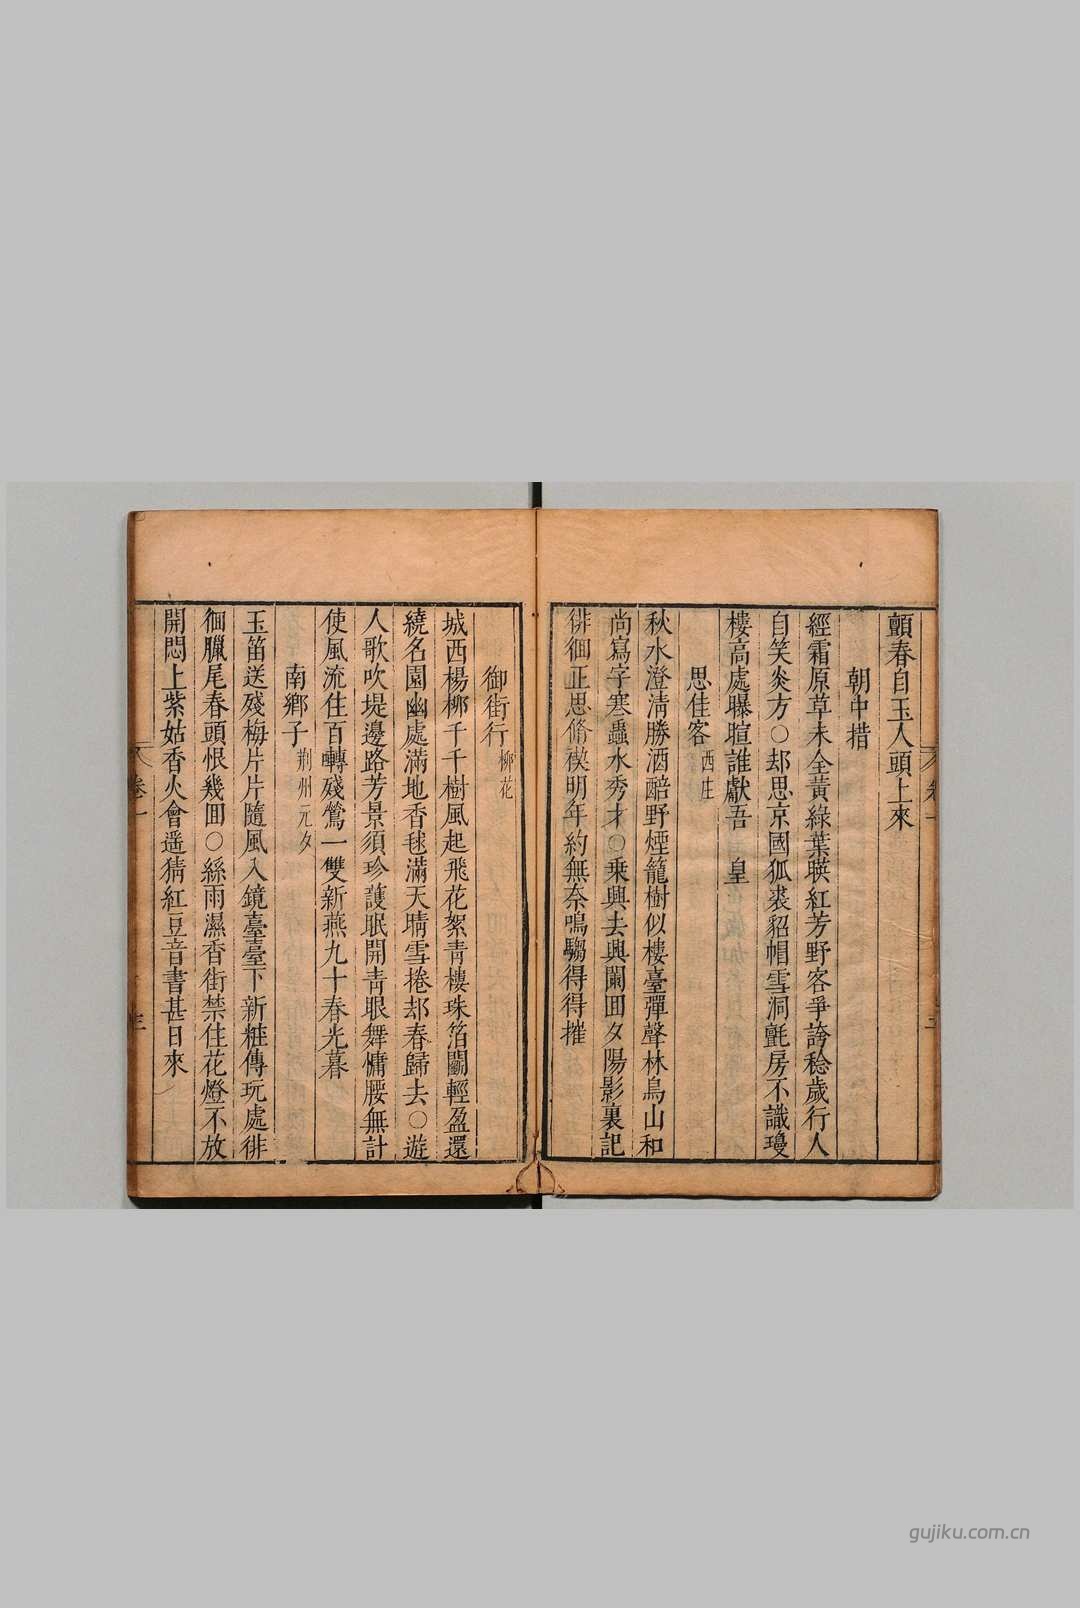 顫春自玉人頭上來
朝中措
經霜原草未全黃綠葉暎紅芳野客爭誇稔歲行人
自笑炎方○却思京國狐裘貂帽雪洞氈房不識瓊
樓高處曝暄誰獻吾　皇
思佳客西庄
秋水澄清勝酒醅野煙籠樹似樓臺彈聲林鳥山和
尚寫字寒蟲水秀才○乘興去興闌囬夕陽影裏記
徘徊正思脩禊明年約無奈鳴騶得得摧
御街行柳花
城西楊柳千千樹風起飛花絮靑樓珠箔鬭輕盈還
繞名園幽處滿地香毬滿天晴雪捲却春歸去○遊
人歌吹堤邊路芳景須珍護眠開靑眼舞慵腰無計
使風流住百轉殘鶯一雙新燕九十春光暮
南鄉子荆州元夕
玉笛送殘梅片片隨風入鏡臺臺下新粧傳玩處徘
徊臘尾春頭恨幾囬○絲雨濕香街禁住花燈不放
開悶上紫姑香火會遥猜紅豆音書甚日來
卷一
三
gujiku.com.cn